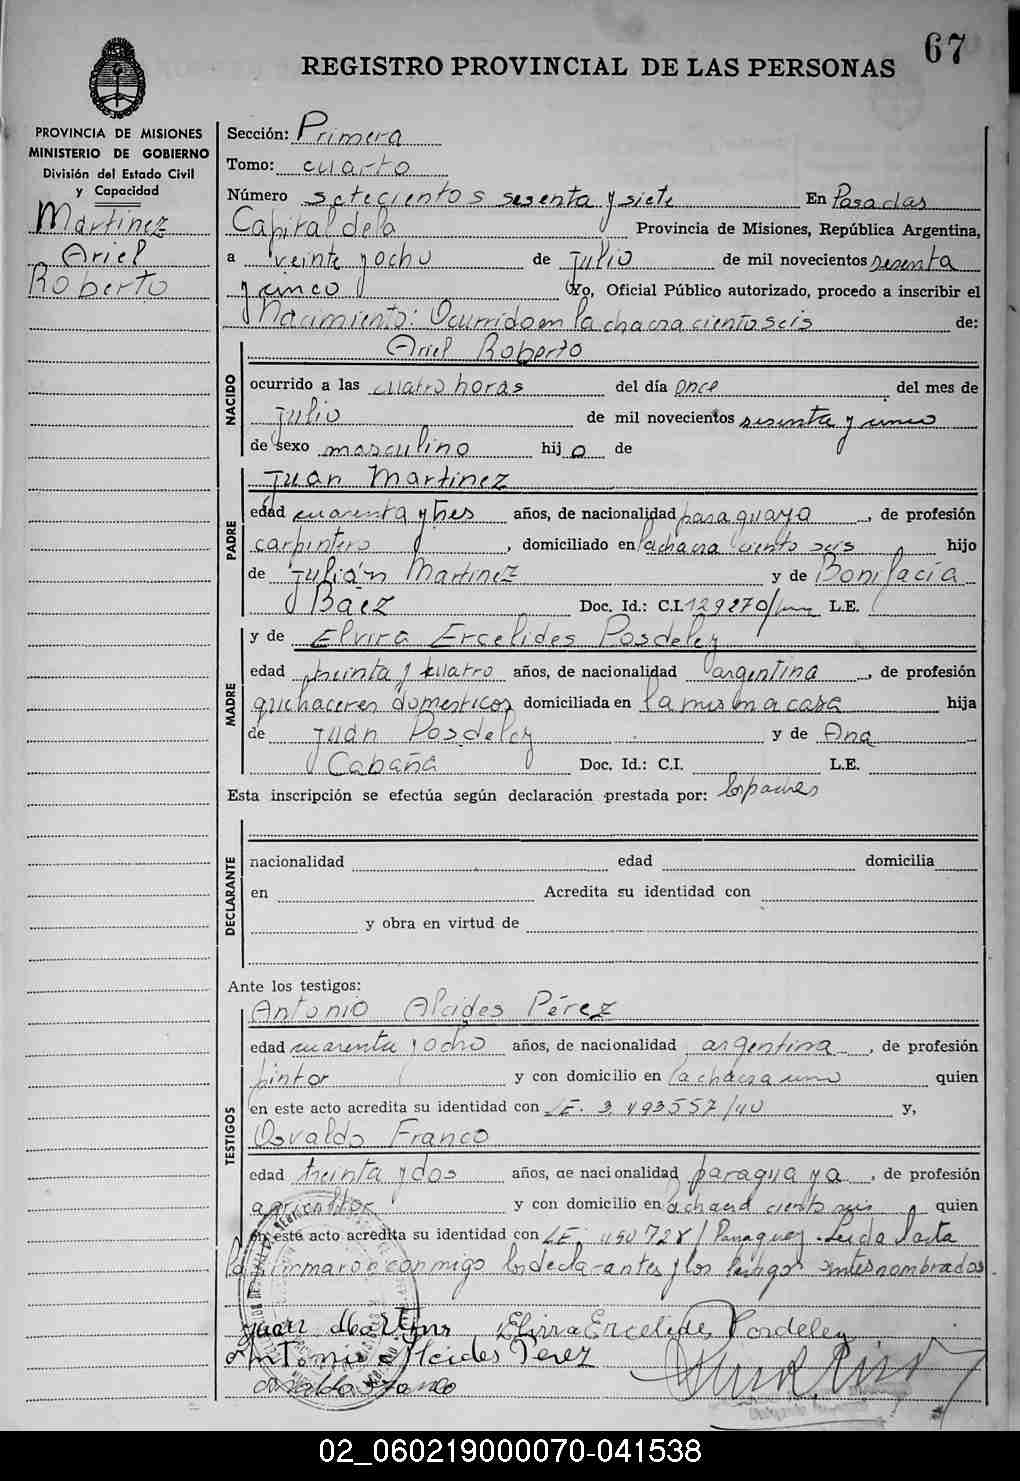 67
REGISTRO PROVINCIAL DE LAS PERSONAS
PROVINCIA DE MISIONES
MINISTERIO DE GOBIERNO
División del Estado Civil
y Capacidad
Martinez
Ariel
Roberto
Sección: Primera
Tomo: cuarto
Número setecientos sesenta y siete En Posadas
Capital de la Provincia de Misiones, República Argentina,
a veinte y ocho de julio de mil novecientos sesenta
y cinco Yo, Oficial Público autorizado, procedo a inscribir el
Nacimiento: Ocurrido en la chacra ciento seis de:
NACIDO
Ariel Roberto
ocurrido a las cuatro horas del día once del mes de
julio de mil novecientos sesenta y uno
de sexo masculino hijo de
PADRE
Juan Martinez
edad cuarenta y tres años, de nacionalidad paraguaya, de profesión
carpintero, domiciliado en la chacra ciento seis hijo
de Julián Martinez y de Bonifacia
Báez Doc. Id.: C.I. 129270/ L.E.
MADRE
y de Elvira Ercelides Posdeley
edad treinta y cuatro años, de nacionalidad argentina, de profesión
quehaceres domesticos domiciliada en la misma casa hija
de Juán Posdeley y de Ana
Cabaña Doc. Id.: C.I. L.E.
Esta inscripción se efectúa según declaración prestada por: los padres
DECLARANTE
nacionalidad edad domicilia
en Acredita su identidad con
y obra en virtud de
Ante los testigos:
TESTIGOS
Antonio Alcides Pérez
edad cuarenta y ocho años, de nacionalidad argentina, de profesión
pintor y con domicilio en la chacra uno quien
en este acto acredita su identidad con LE. 3.493557/40 y,
Osvaldo Franco
edad treinta y dos años, de nacionalidad paraguaya, de profesión
agricultor y con domicilio en la chacra ciento seis quien
en este acto acredita su identidad con Paraguay. Leida l'acta
la firmaron conmigo los declarantes y los testigos antes nombrados.
Juan Martines Elvira Ercelides Pordeley
Antonio Alcides Perez
Osvaldo Franco
02_060219000070-041538